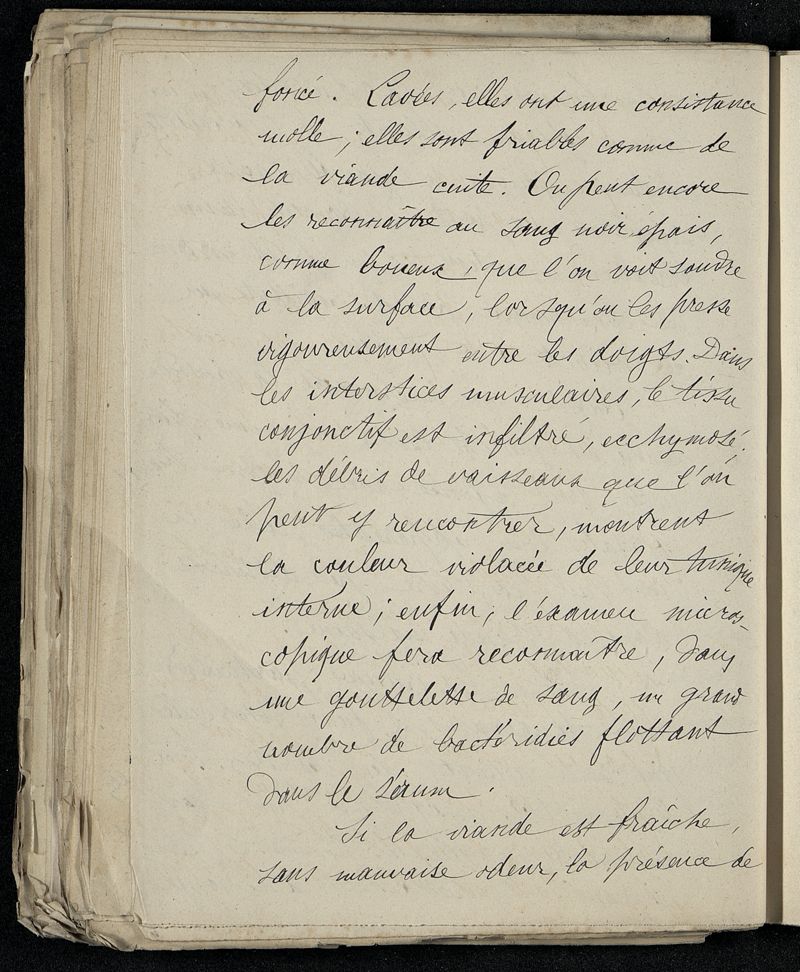 foncé. Lavées, elles ont une consistance
molle; elles sont friables comme de
la viande cuite. On peut encore
les reconnaître au sang noir, épais,
comme boueux, que l'on voit soudre
à la surface, lorsqu'on les presse
vigoureusement entre les doigts. Dans
les interstices musculaires, le tissu
conjonctif est infiltré, ecchymosé.
les débris de vaisseaux que l'on
peut y rencontrer, montrent
la couleur violacée de leur tunique
interne; enfin, l'éxamen micros-
copique fera reconnaître, dans
une gouttelette de sang, un grand
nombre de bactéridies flottant
dans le sérum.
Si la viande est fraîche,
sans mauvaise odeur, la présence de